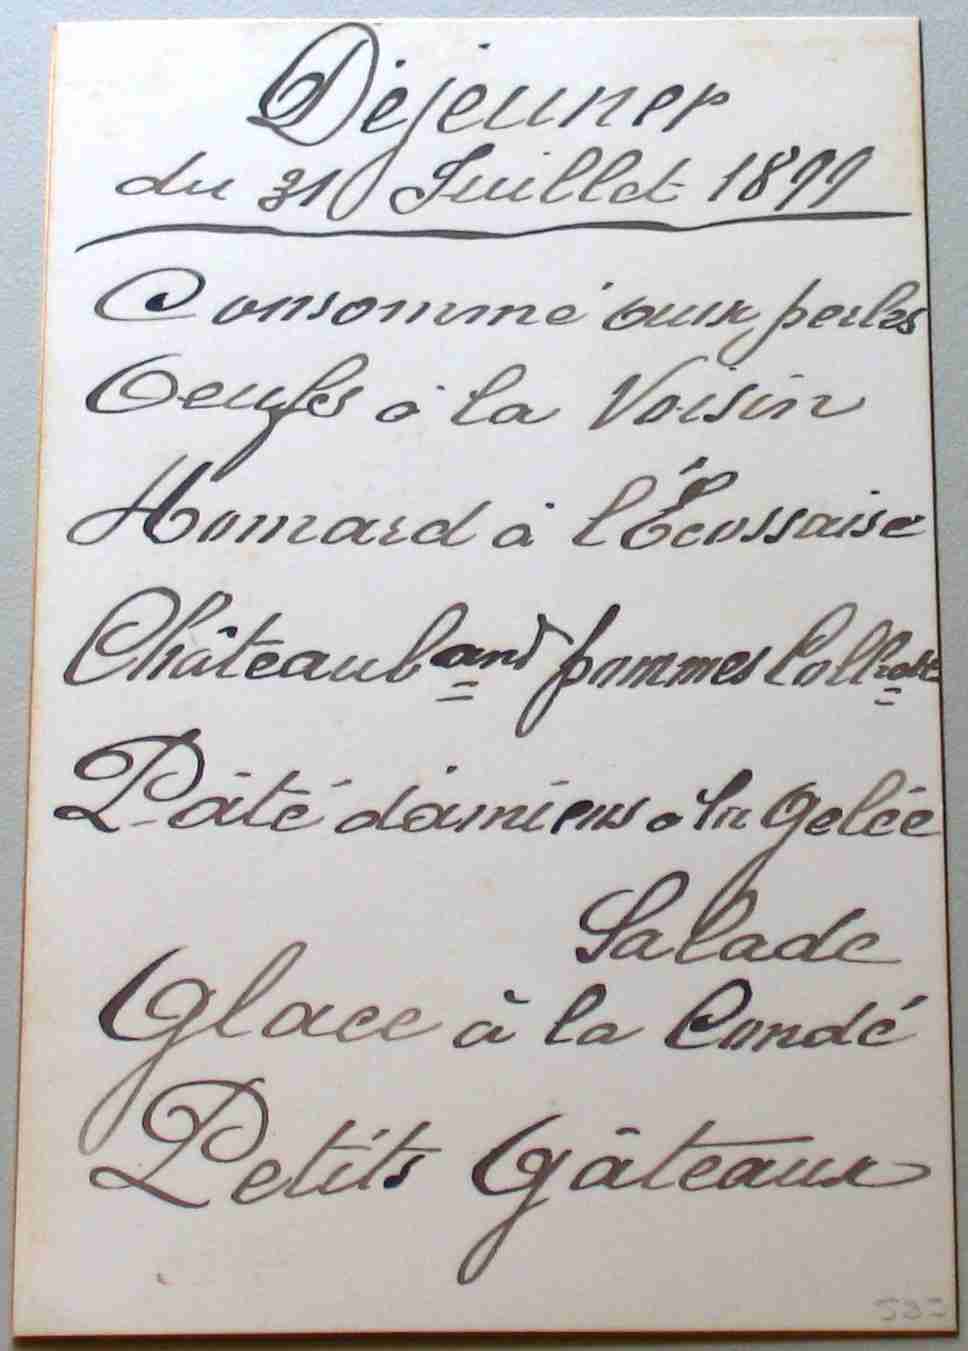 Déjeuner
du 31 Juillet 1899
Consommé aux perles
Oeufs à la Voisin
Homard à l'Écossaise
Châteauband pommes
Pâté d'amiens à la gelée
Salade
Glace à la Condé
Petits Gâteaux